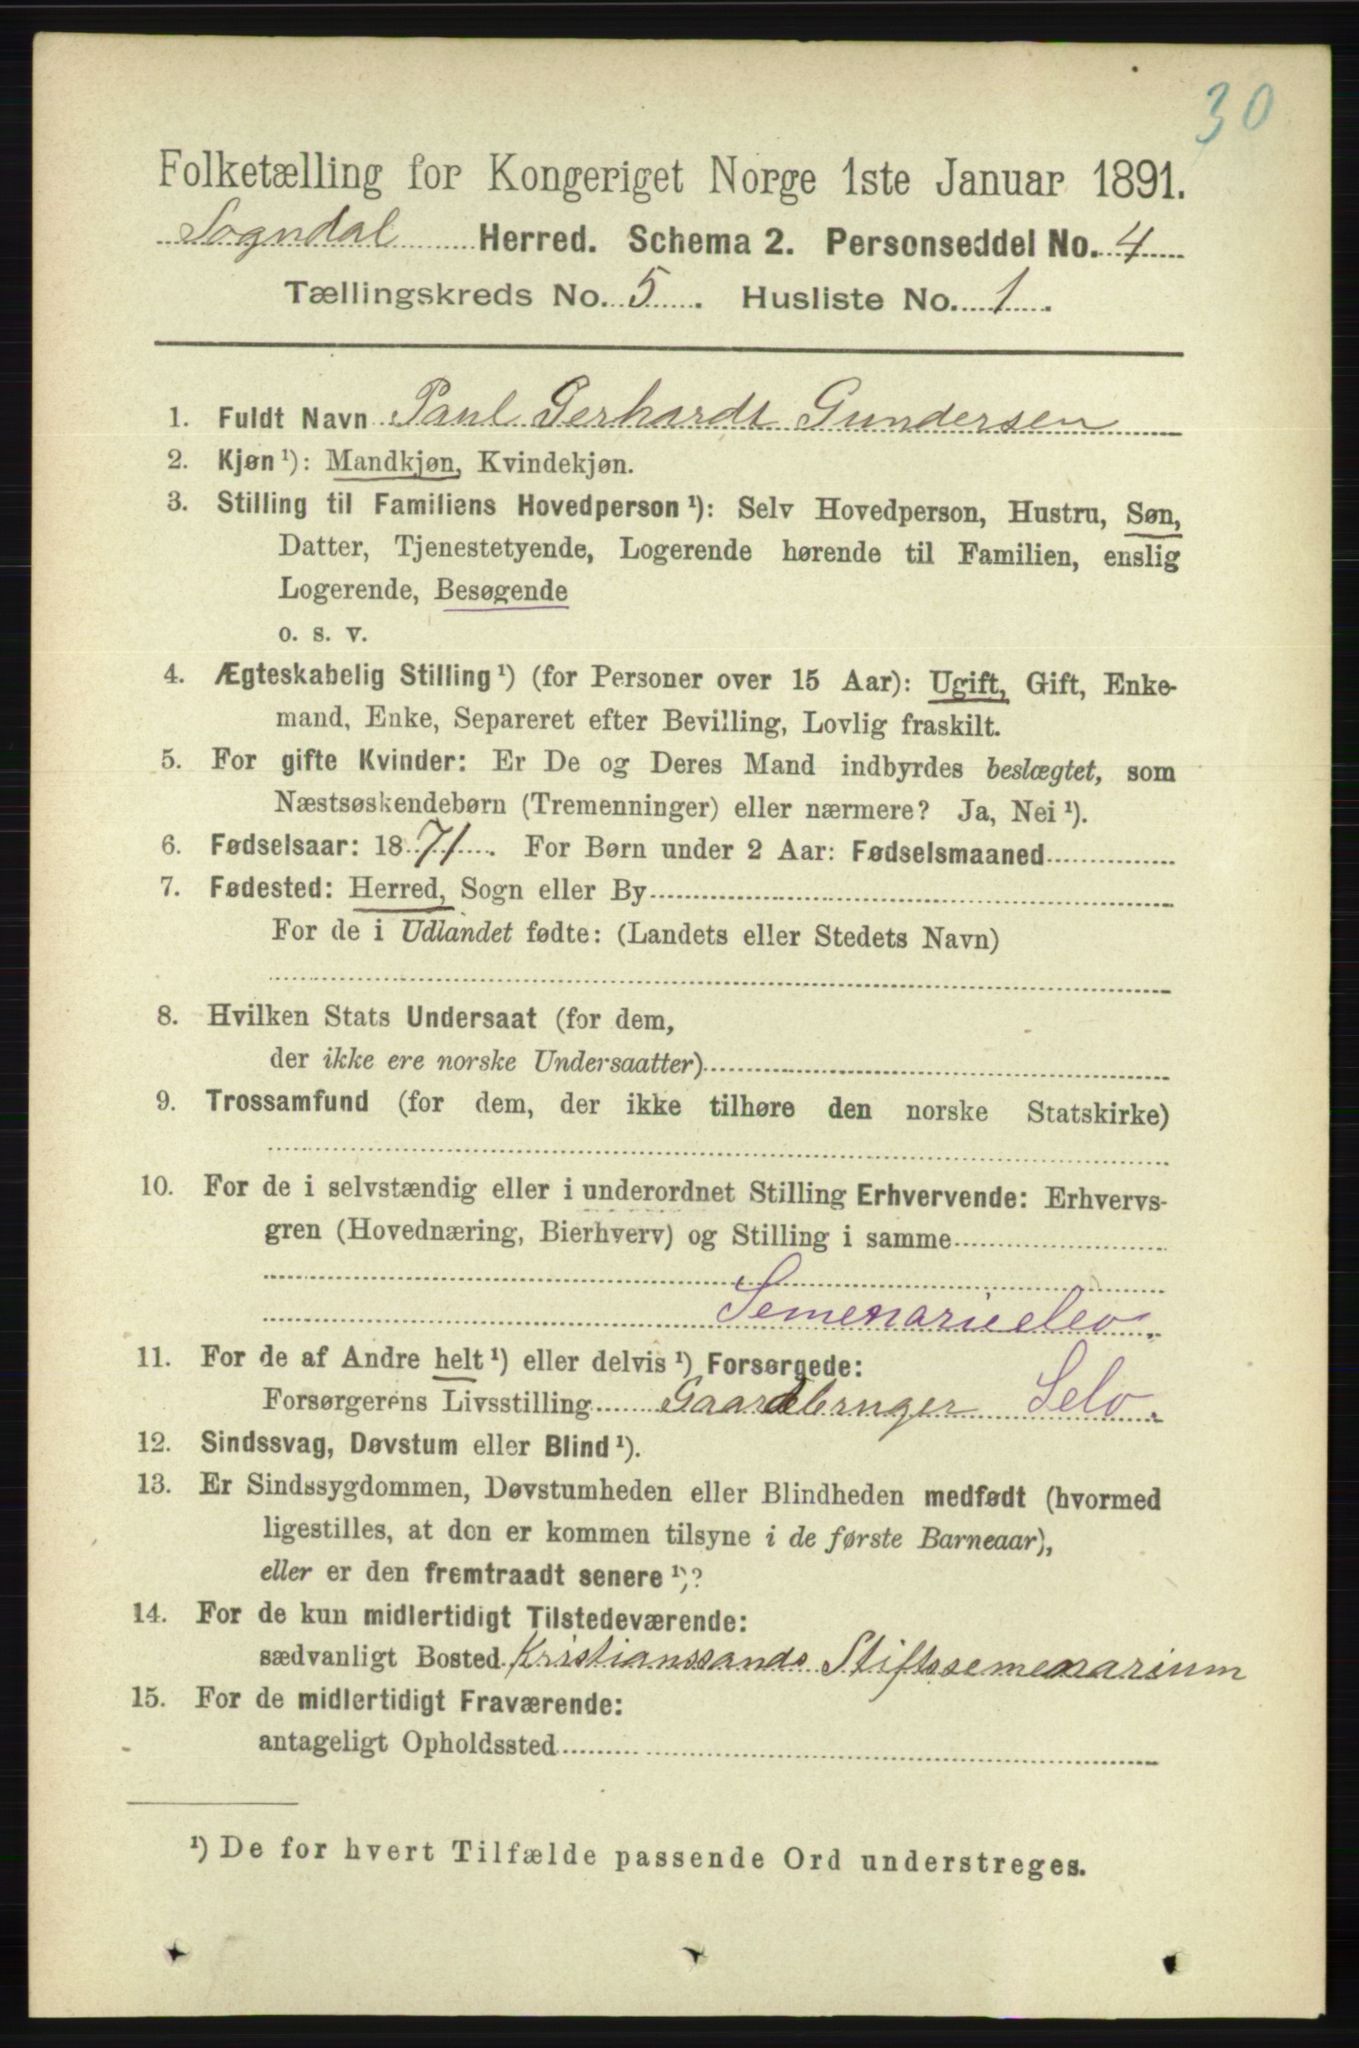 30
Folketælling for Kongeriget Norge 1ste Januar 1891.
Sogndal Herred. Schema 2. Personseddel No. 4
Tællingskreds No. 5. Husliste No. 1.
1. Fuldt Navn Paul Gerhardt Gundersen
2. Kjøn ¹): Mandkjøn, Kvindekjøn.
3. Stilling til Familiens Hovedperson ¹): Selv Hovedperson, Hustru, Søn,
Datter, Tjenestetyende, Logerende hørende til Familien, enslig
Logerende, Besøgende
o. s. v.
4. Ægteskabelig Stilling ¹) (for Personer over 15 Aar): Ugift, Gift, Enke-
mand, Enke, Separeret efter Bevilling, Lovlig fraskilt.
5. For gifte Kvinder: Er De og Deres Mand indbyrdes beslægtet, som
Næstsøskendebørn (Tremenninger) eller nærmere? Ja, Nei ¹).
6. Fødselsaar: 1871. For Børn under 2 Aar: Fødselsmaaned
7. Fødested: Herred, Sogn eller By
For de i Udlandet fødte: (Landets eller Stedets Navn)
8. Hvilken Stats Undersaat (for dem,
der ikke ere norske Undersaatter)
9. Trossamfund (for dem, der ikke tilhøre den norske Statskirke)
10. For de i selvstændig eller i underordnet Stilling Erhvervende: Erhvervs-
gren (Hovednæring, Bierhverv) og Stilling i samme
Semenarieelev.
11. For de af Andre helt ¹) eller delvis ¹) Forsørgede:
Forsørgerens Livsstilling Gaardbruger Selv.
12. Sindssvag, Døvstum eller Blind ¹).
13. Er Sindssygdommen, Døvstumheden eller Blindheden medfødt (hvormed
ligestilles, at den er kommen tilsyne i de første Barneaar),
eller er den fremtraadt senere ¹)?
14. For de kun midlertidigt Tilstedeværende:
sædvanligt Bosted Kristianssands Stiftssemenarium
15. For de midlertidigt Fraværende:
antageligt Opholdssted
¹) De for hvert Tilfælde passende Ord understreges.